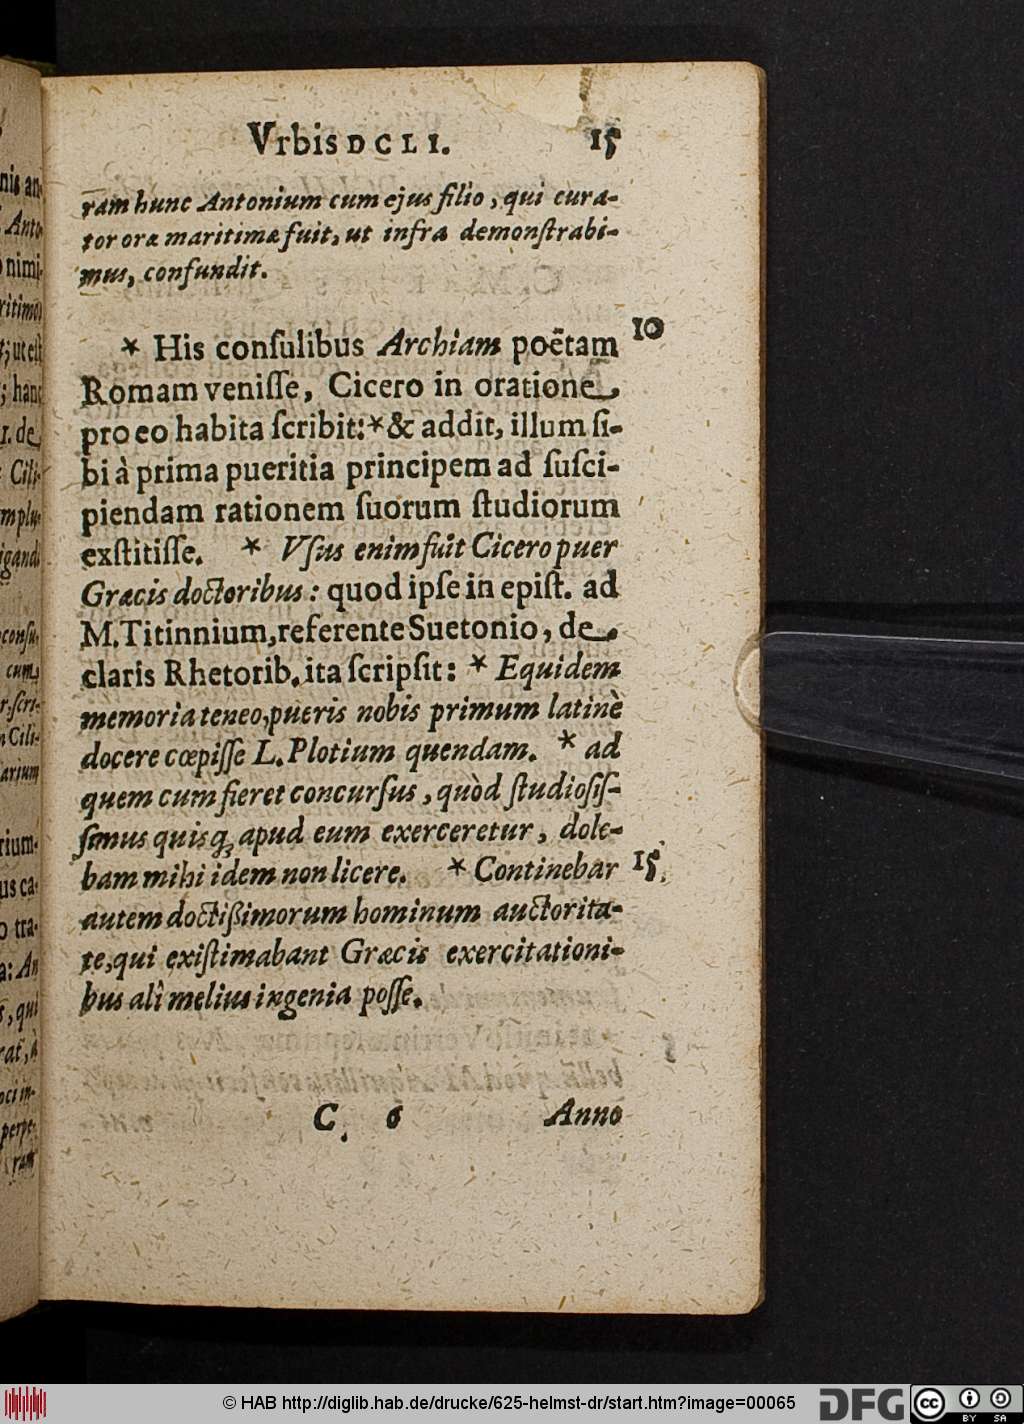 Vrbis DCLI. 15
ram hunc Antonium cum ejus filio, qui cura-
tor oræ maritimæ fuit, ut infra demonſtrabi-
mus, confundit.
* His conſulibus Archiam poëtam 10
Romam veniſſe, Cicero in oratione,
pro eo habita ſcribit:* & addit, illum ſi-
bi à prima pueritia principem ad ſuſci-
piendam rationem ſuorum ſtudiorum
exſtitiſſe. * Vſus enim fuit Cicero puer
Græcis doctoribus: quod ipſe in epiſt. ad
M. Titinnium, referente Suetonio, de
claris Rhetorib. ita ſcripſit: * Equidem
memoria teneo, pueris nobis primum latinè
docere cœpiſſe L. Plotium quendam. * ad
quem cum fieret concurſus, quòd ſtudioſiſ-
ſimus quisq; apud eum exerceretur, dole-
bam mihi idem non licere. * Continebar 15
autem doctißimorum hominum auctorita-
te, qui exiſtimabant Græcis exercitationi-
bus ali melius ingenia poſſe.
C 6 Anno
© HAB http://diglib.hab.de/drucke/625-helmst-dr/start.htm?image=00065
DFG
cc
BY SA